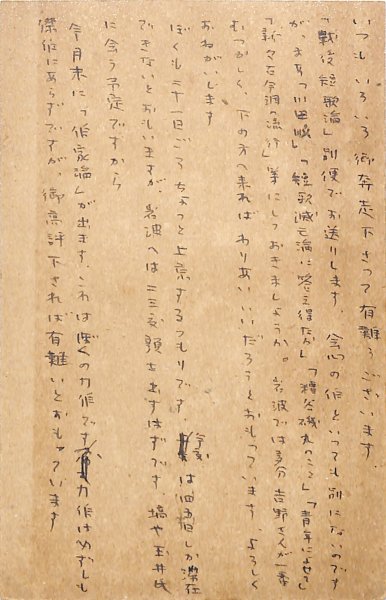 いつもいろいろ御奔走下さつて有難うございます
「戦後短歌論」別便でお送りします、会心の作といつても別にないのです
が、まあ「川田順」「短歌滅亡論に答え得たか」「青年によせて」
「新々古今調の流行」等にしておきましようか。岩波では多分吉野さんが一番
むつかしく、下の方へ来ればわりあいいいだろうとおもつています、よろしく
おねがいします
ぼくも二十一日ごろちよつと上京するつもりです、今度は四五日しか滞在
できないとおもいますが、岩波へは二三度顔を出すはずです、塙や玉井氏
に会う予定ですから
今月末に「作家論」が出ます、これはぼくの力作です、力作は必ずしも
傑作にあらずですが、御高評下されば有難いとおもつています